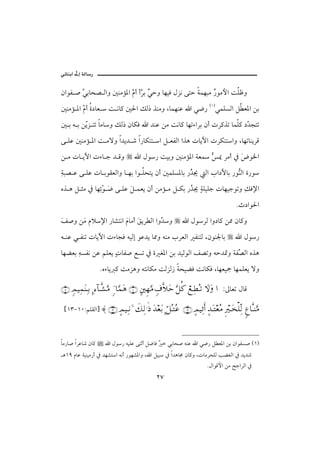 رسالة إلى ابنتاي
وظلَّت الأمورُ مبهمةً حتى نزل فيها وحيٌ برَّأ أمَّ المؤمنين والصحابيَّ صفوان
بن المعطَّل السلمي (١) رضي الله عنهما، ومنذ ذلك الحين كانت سعادةُ أمِّ المؤمنين
تتجدَّد كلَّما تذكرت أن براءتها كانت من عند الله فكان ذلك وساماً تتزيَّن به بين
قريناتها، واستنكرت الآيات هذا الفعل استنكاراً شديداً ولامت المؤمنين على
الخوض في أمر يمسُّ سمعة المؤمنين وبيت رسول الله ﷺ وقد جاءت الآيات من
سورة النُّور بالآداب التي يجدُر بالمسلمين أن يتحلَّوا بها والعقوبات على عصبة
الإفك وتوجيهات جليلةٍ يجدُر بكل مؤمن أن يعمل على ضوئها في مثل هذه
الحوادث.
وكان ممن كادوا لرسول الله ﷺ وسدُّوا الطريقَ أمامَ انتشار الإسلام مَن وصفَ
رسول الله ﷺ بالجنون، لتنفير العرب منه ومما يدعو إليه فجاءت الآيات تنفي عنه
هذه الصفّة وتمدحه وتصف الوليد بن المغيرة في تسع صفاتٍ يعلم عن نفسه بعضها
ولا يعلمها جميعها، فكانت فضيحةً زلزلت مكانته وهزمت كبرياءه.
قال تعالى: ﴿ وَلَا تُطِعْ كُلَّ حَلَّافٍ مَّهِينٍ ۝ هَمَّازٍ مَّشَّاءٍ بِنَمِيمٍ ۝
مَّنَّاعٍ لِّلْخَيْرِ مُعْتَدٍ أَثِيمٍ ۝ عُتُلٍّ بَعْدَ ذَٰلِكَ زَنِيمٍ ۝ ﴾ [القلم:١٠-١٣]
(١) صفوان بن المعطل رضي الله عنه صحابي خيِّر فاضل أثنى عليه رسول الله ﷺ كان شاعراً صارماً
شديد في الغضب للحرمات، وكان مجاهداً في سبيل الله، والمشهور أنه استشهد في أرمينية عام ١٩هـ
في الراجح من الأقوال.
٢٧